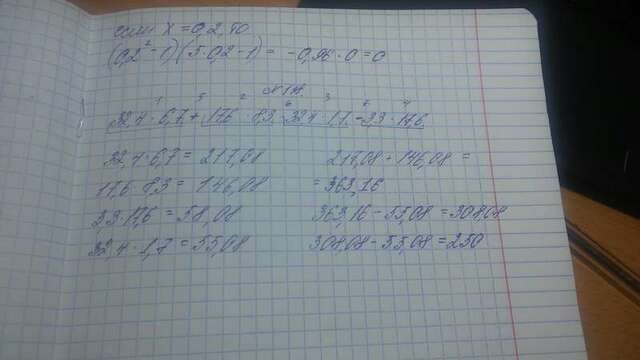 если X = 0,2, то
(0,2² - 1)(5·0,2 - 1) = -0,96 · 0 = 0
1 5 2 6 3
32,4 · 6,7 + 17,6 · 8,3 - 32,4 · 1,7 - 3,3 · 17,6
32,4 · 6,7 = 217,08
17,6 · 8,3 = 146,08
3,3 · 17,6 = 58,08
32,4 · 1,7 = 55,08
217,08 + 146,08 =
= 363,16
363,16 - 55,08 = 308,08
308,08 - 55,08 = 250